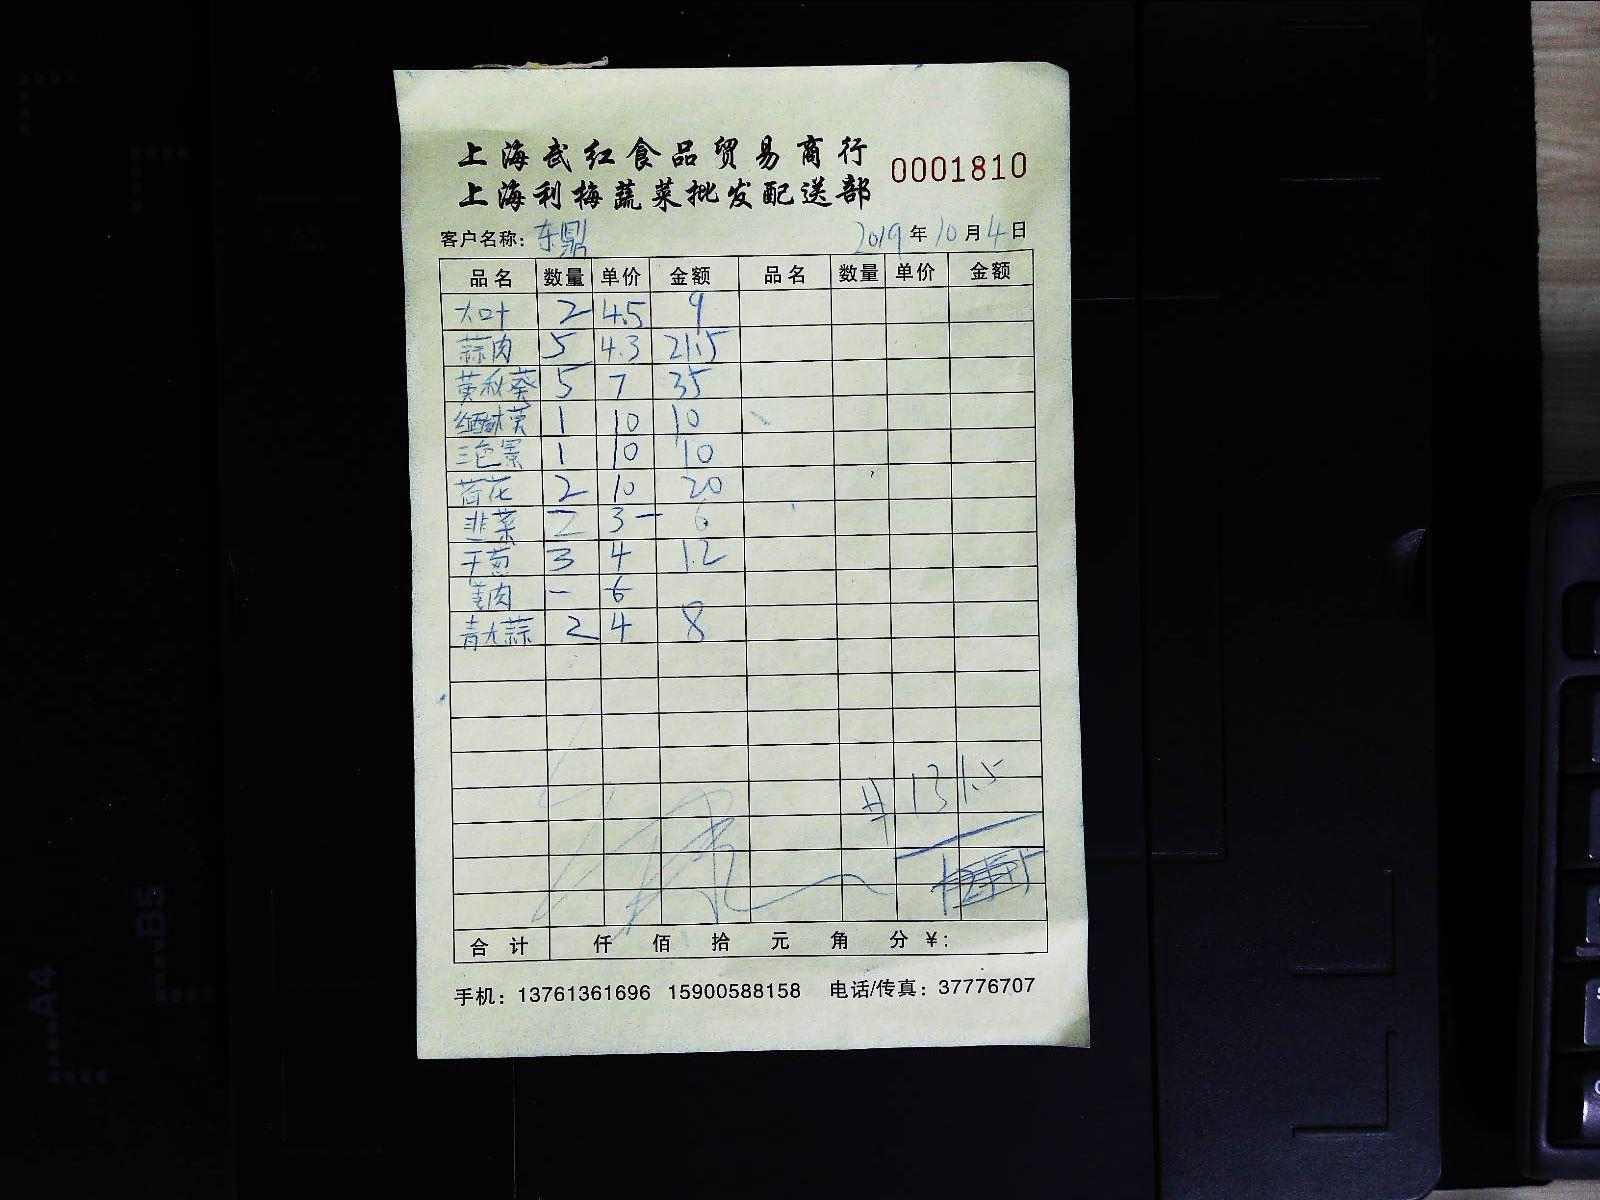 上海武红食品贸易商行
上海利梅蔬菜批发配送部
0001810
客户名称: 东鼎 2019年10月4日
品名 数量 单价 金额 品名 数量 单价 金额
大叶 2 4.5 9
蒜肉 5 4.3 21.5
黄秋葵 5 7 35
1 10 10
三色堇 1 10 10
荷花 2 10 20
韭菜 2 3 6
干葱 3 4 12
姜肉 一 6
青大蒜 2 4 8
131.5
合计 仟 佰 拾 元 角 分 ¥:
手机: 13761361696 15900588158 电话/传真: 37776707
A4
B5